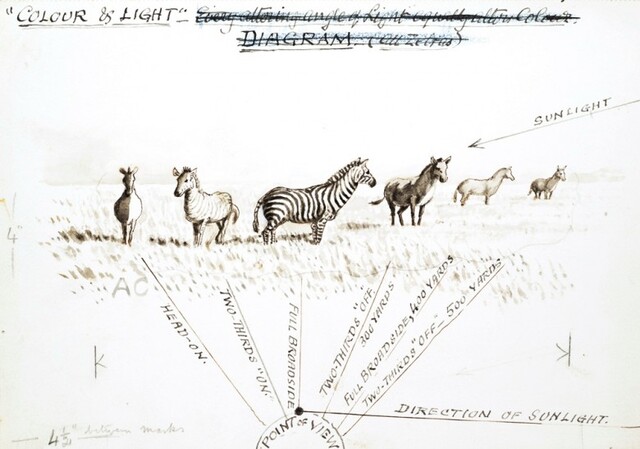 "COLOUR & LIGHT" Every altering angle of Light equally alters Colour.
DIAGRAM. (all Zebras)
SUNLIGHT
4"
AC
HEAD-ON.
TWO-THIRDS "ON."
FULL BROADSIDE
TWO-THIRDS "OFF.
300 YARDS
FULL BROADSIDE, 400 YARDS
TWO-THIRDS "OFF- 500 YARDS"
K
K
DIRECTION OF SUNLIGHT.
POINT OF VIEW
4 1/2" between marks